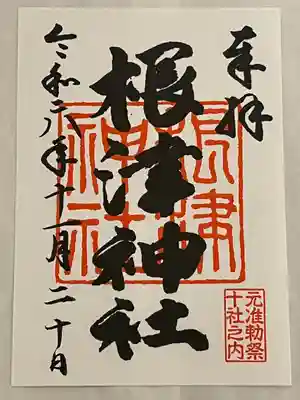 奉拝
根津神社
根津神社
元准勅祭
十社之内
令和六年十一月二十日